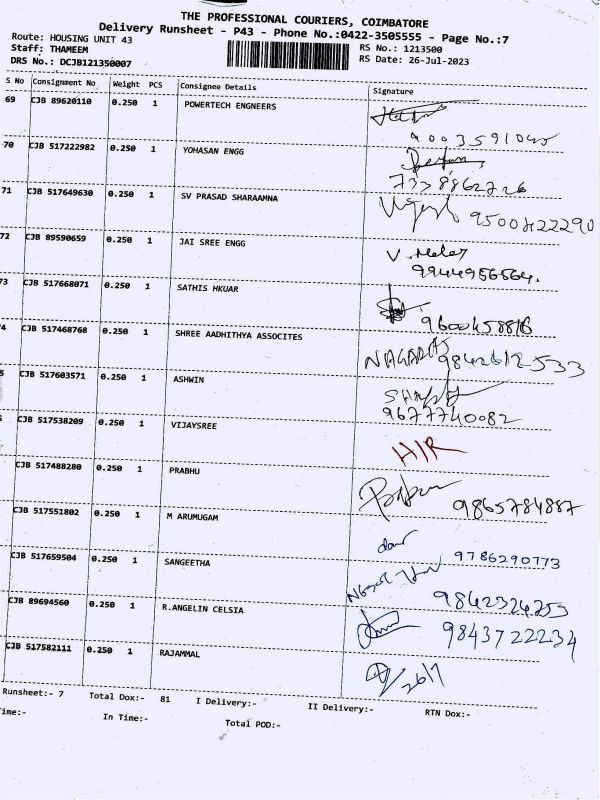 THE PROFESSIONAL COURIERS, COIMBATORE
Delivery Runsheet - P43 - Phone No.:0422-3505555 - Page No.:7
Route: HOUSING UNIT 43
Staff: THAMEEM
RS No.: 1213500
DRS No.: DCJB121350007
RS Date: 26-Jul-2023
S No Consignment No Weight PCS Consignee Details Signature
69 CJB 89620110 0.250 1 POWERTECH ENGNEERS
9003591045
70 CJB 517222982 0.250 1 YOHASAN ENGG
7338862726
71 CJB 517649630 0.250 1 SV PRASAD SHARAAMNA
9500422290
72 CJB 89590659 0.250 1 JAI SREE ENGG
9944956564.
73 CJB 517668071 0.250 1 SATHIS HKUAR
9600458816
4 CJB 517468768 0.250 1 SHREE AADHITHYA ASSOCITES
NAGARAJ 9842612533
5 CJB 517603571 0.250 1 ASHWIN
9677740082
CJB 517538209 0.250 1 VIJAYSREE
H/R
CJB 517488280 0.250 1 PRABHU
9865784887
CJB 517551802 0.250 1 M ARUMUGAM
9786290773
CJB 517659504 0.250 1 SANGEETHA
9842324253
CJB 89694560 0.250 1 R.ANGELIN CELSIA
9843722234
CJB 517582111 0.250 1 RAJAMMAL
26/7
Runsheet:- 7 Total Dox:- 81 I Delivery:- II Delivery:- RTN Dox:-
ime:- In Time:- Total POD:-